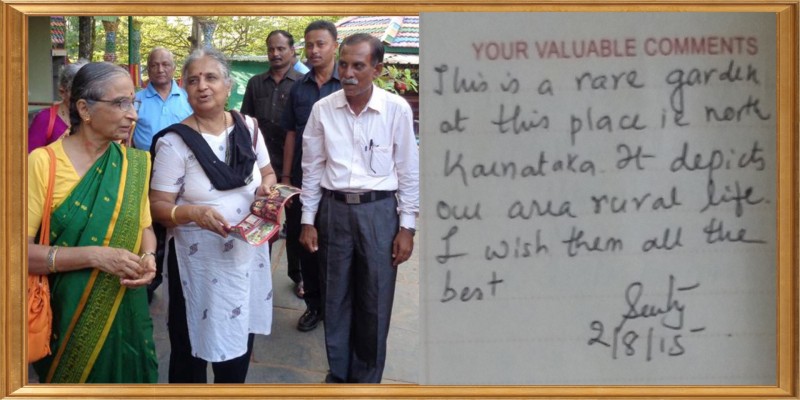 YOUR VALUABLE COMMENTS
This is a rare garden
at this place ie north
Karnataka. It depicts
our area rural life.
I wish them all the
best
2/8/15